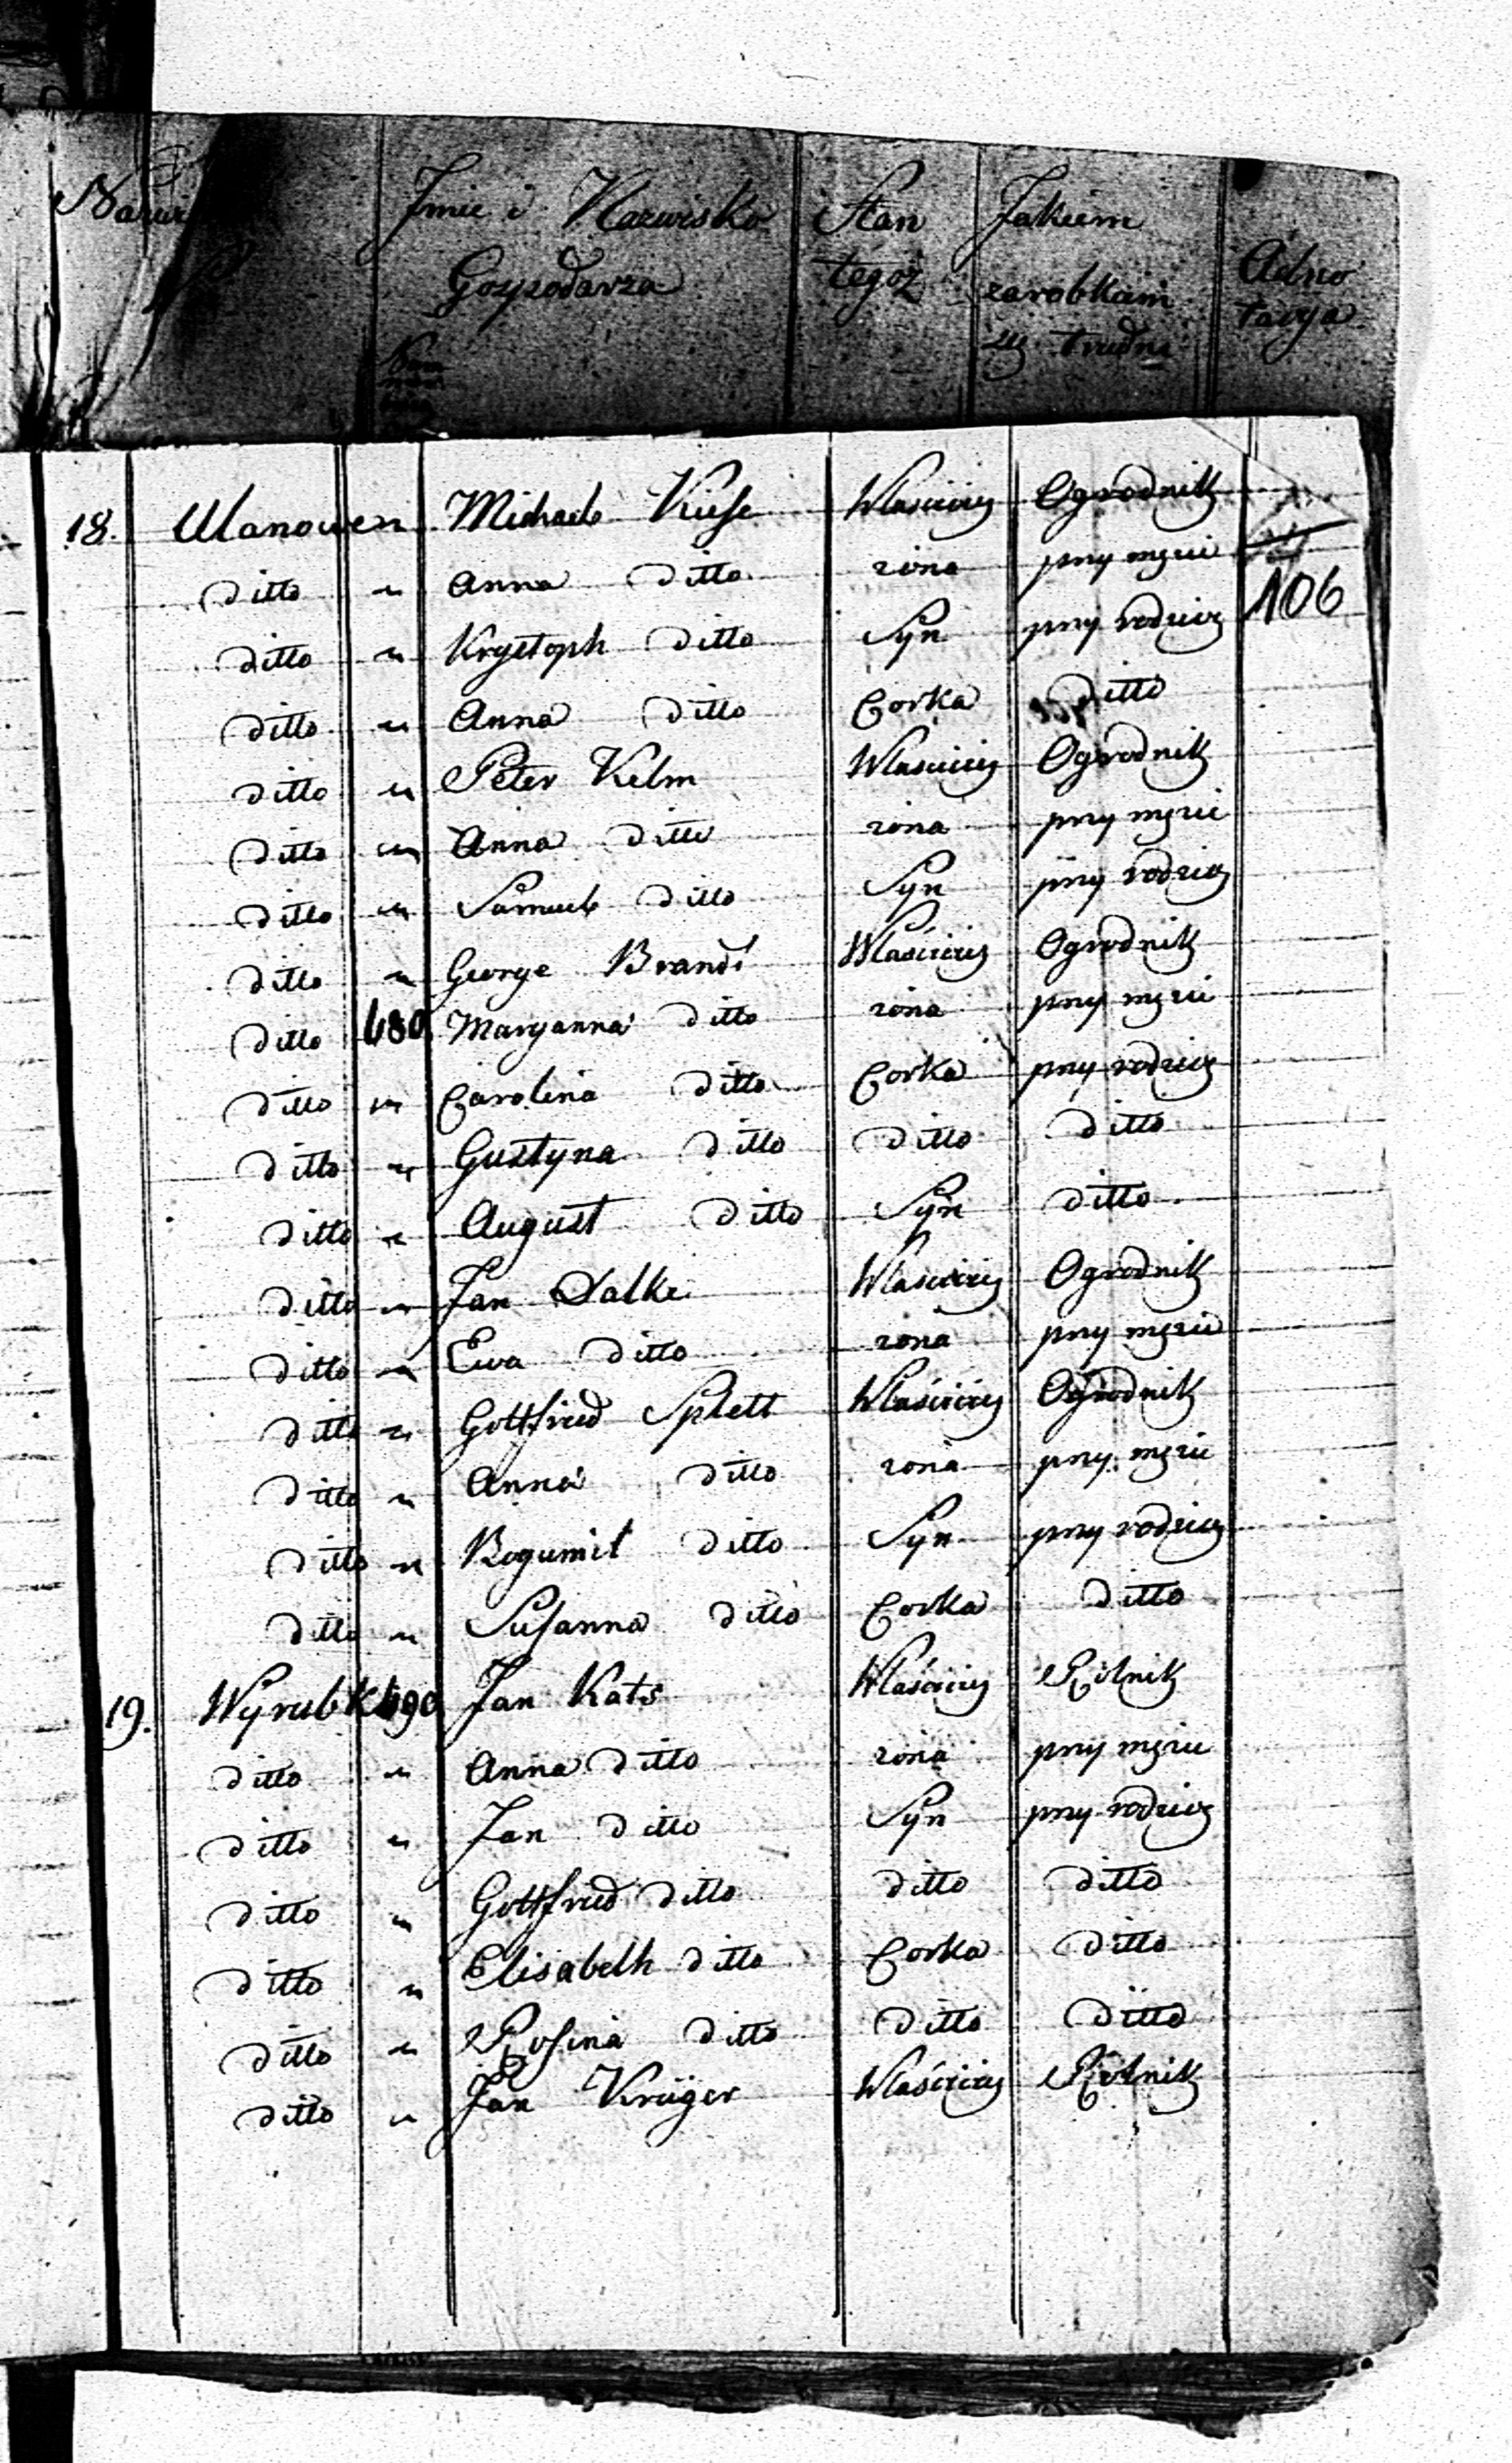 Imie i Nazwisko Gospodarza Stan tegoż Jakiem zarobkiem się trudni Adnotacya
106
18. Ulanowen Michael Kiese Właściciel Ogrodnik
ditto " Anna ditto żona przy mężu
ditto " Krystoph ditto Syn przy rodzicz
ditto " Anna ditto Corka ditto
ditto " Peter Kelm Właściciel Ogrodnik
ditto " Anna ditto żona przy mężu
ditto " Samuel ditto Syn przy rodzicz
ditto " George Brandt Właściciel Ogrodnik
ditto 480 Maryanna ditto żona przy mężu
ditto " Carolina ditto Corka przy rodzicz
ditto " Gustyna ditto ditto ditto
ditto " August ditto Syn ditto
ditto " Jan Dalke Właściciel Ogrodnik
ditto " Ewa ditto żona przy mężu
ditto " Gottfried Splett Właściciel Ogrodnik
ditto " Anna ditto żona przy mężu
ditto " Bogumił ditto Syn przy rodzicz
ditto " Susanna ditto Corka ditto
19. Wyrubk 490 Jan Kats Właściciel Rolnik
ditto " Anna ditto żona przy mężu
ditto " Jan ditto Syn przy rodzicz
ditto " Gottfried ditto ditto ditto
ditto " Elisabeth ditto Corka ditto
ditto " Rosina ditto ditto ditto
ditto " Jan Krüger Właściciel Rolnik